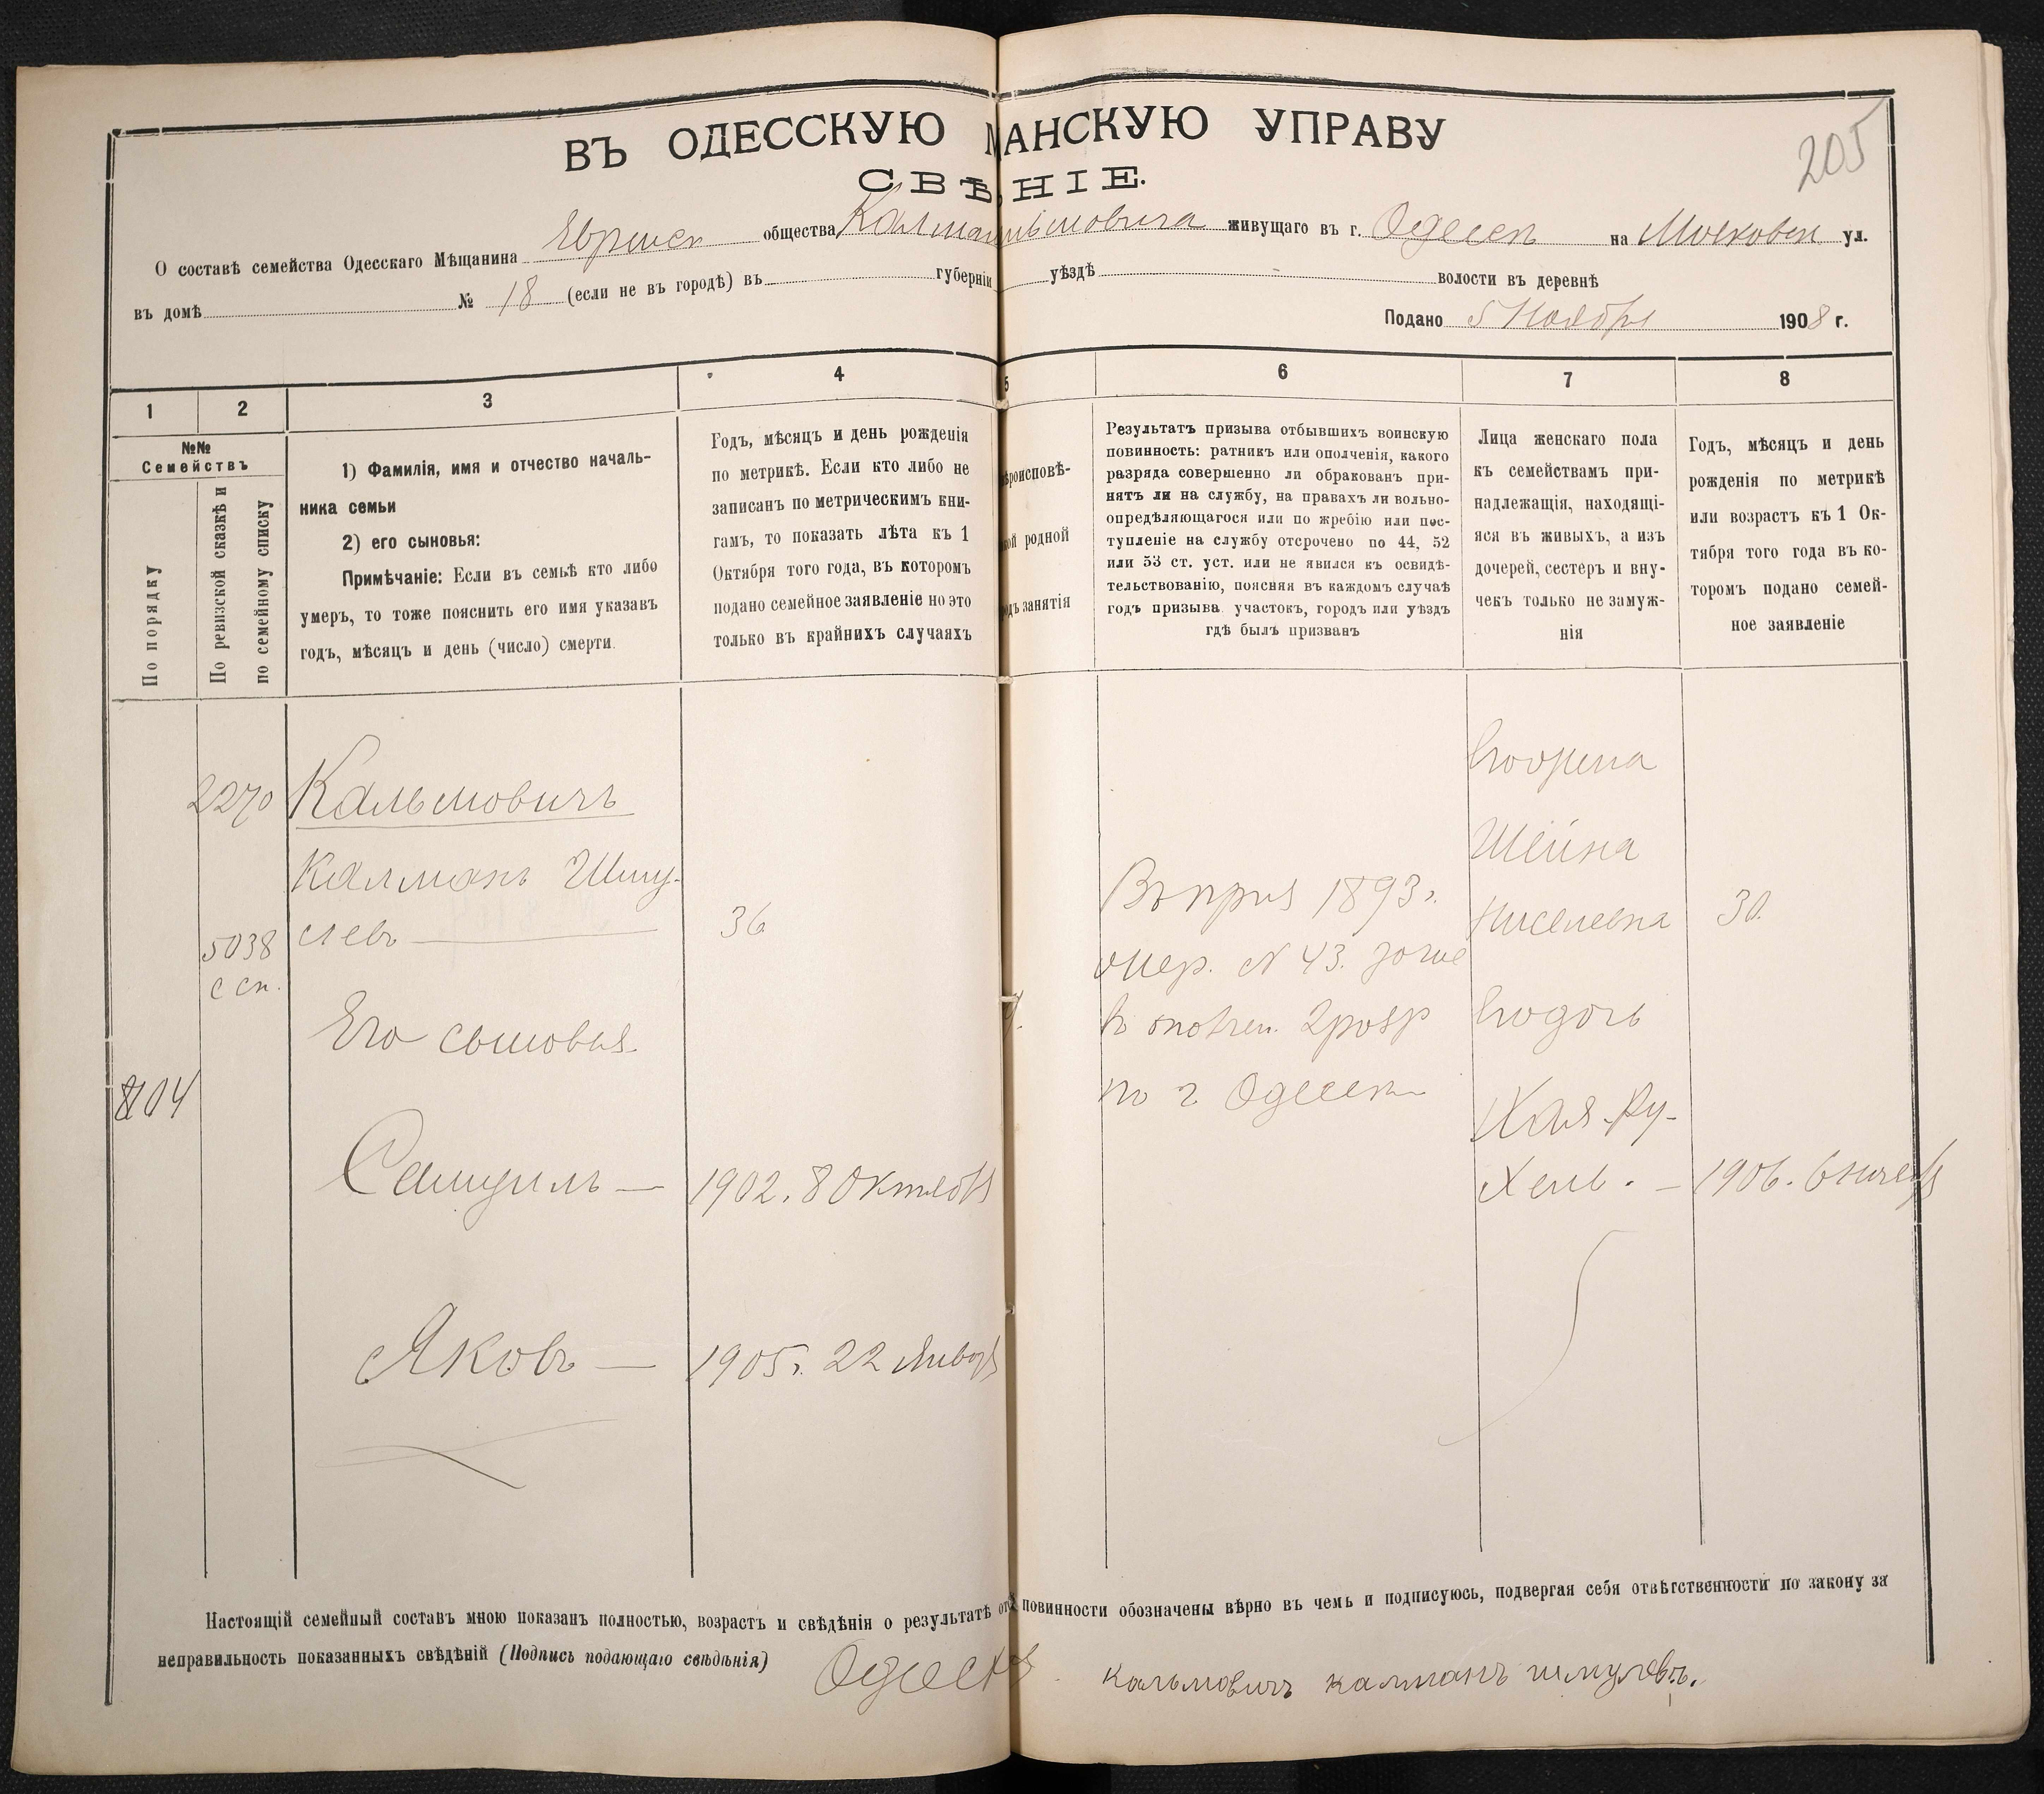 205
ВЪ ОДЕССКУЮ МАНСКУЮ УПРАВУ
СВѢНІЕ.
О составѣ семейства Одесскаго Мѣщанина Еврейск общества Калмана Кальмовича живущаго въ г. Одессѣ на Московск ул.
въ домѣ № 18 (если не въ городѣ) въ губерніи уѣздѣ волости въ деревнѣ
Подано 5 Ноября 1908 г.
1 2 3 4 5 6 7 8
№№
Семействъ
По порядку
По ревизской сказкѣ и
по семейному списку
1) Фамилія, имя и отчество началь-
ника семьи
2) его сыновья:
Примѣчаніе: Если въ семьѣ кто либо
умеръ, то тоже пояснить его имя указавъ
годъ, мѣсяцъ и день (число) смерти.
Годъ, мѣсяцъ и день рожденія
по метрикѣ. Если кто либо не
записанъ по метрическимъ кни-
гамъ, то показать лѣта къ 1
Октября того года, въ которомъ
подано семейное заявленіе но это
только въ крайнихъ случаяхъ
ѣроисповѣ-
кой родной
одъ занятія
Результатъ призыва отбывшихъ воинскую
повинность: ратникъ или ополченія, какого
разряда совершенно ли обракованъ при-
нятъ ли на службу, на правахъ ли вольно-
опредѣляющагося или по жребію или пос-
тупленіе на службу отсрочено по 44, 52
или 53 ст. уст. или не явился къ освидѣ-
тельствованію, поясняя въ каждомъ случаѣ
годъ призыва участокъ, городъ или уѣздъ
гдѣ былъ призванъ
Лица женскаго пола
къ семействамъ при-
надлежащія, находящі-
яся въ живыхъ, а изъ
дочерей, сестеръ и вну-
чекъ только не замуж-
нія
Годъ, мѣсяцъ и день
рожденія по метрикѣ
или возрастъ къ 1 Ок-
тября того года въ ко-
торомъ подано семей-
ное заявленіе
2270 Кальмовичъ
Калманъ Шму-
левъ 36
5038
с сп.
Его сыновья
104
Самуилъ — 1902. 8 Октября
Яковъ — 1905 г. 22 Января
Въ приз 1893 г.
жер. № 43. зачис
въ ополчен. 2 разр
по г Одессѣ
Его жена
Шейна
Киселевна 30.
Его дочь
Хая-Ру-
хель. — 1906. 6
Настоящій семейный составъ мною показанъ полностью, возрастъ и свѣдѣнія о результатѣ от повинности обозначены вѣрно въ чемъ и подписуюсь, подвергая себя отвѣтственности по закону за
неправильность показанныхъ свѣдѣній (Подпись подающаго свѣдѣнія) Одесск
Кальмовичъ калманъ шмулевъ.